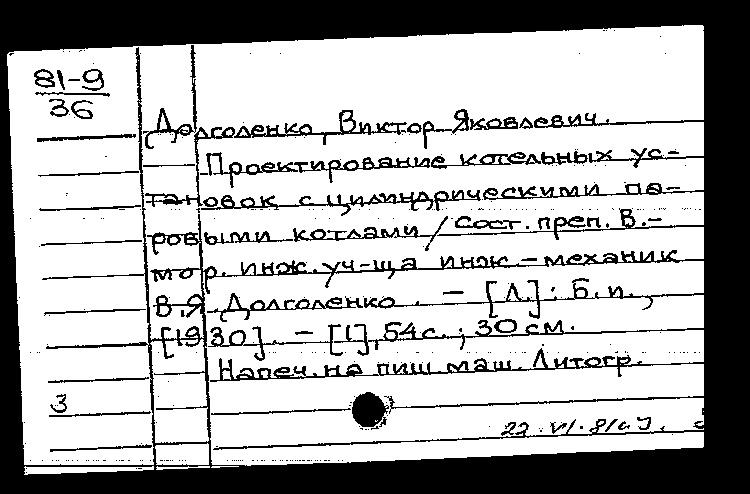 81-9
36
Долголенко, Виктор Яковлевич.
Проектирование котельных ус-
тановок с цилиндрическими па-
ровыми котлами / Сост. преп. В.-
мор. инж. уч-ща инж.-механик
В.Я. Долголенко. - [Л.]: Б.и.,
[1930]. - [1], 54 с.; 30 см.
Напеч. на пиш. маш. Литогр.
3
22.VI.81